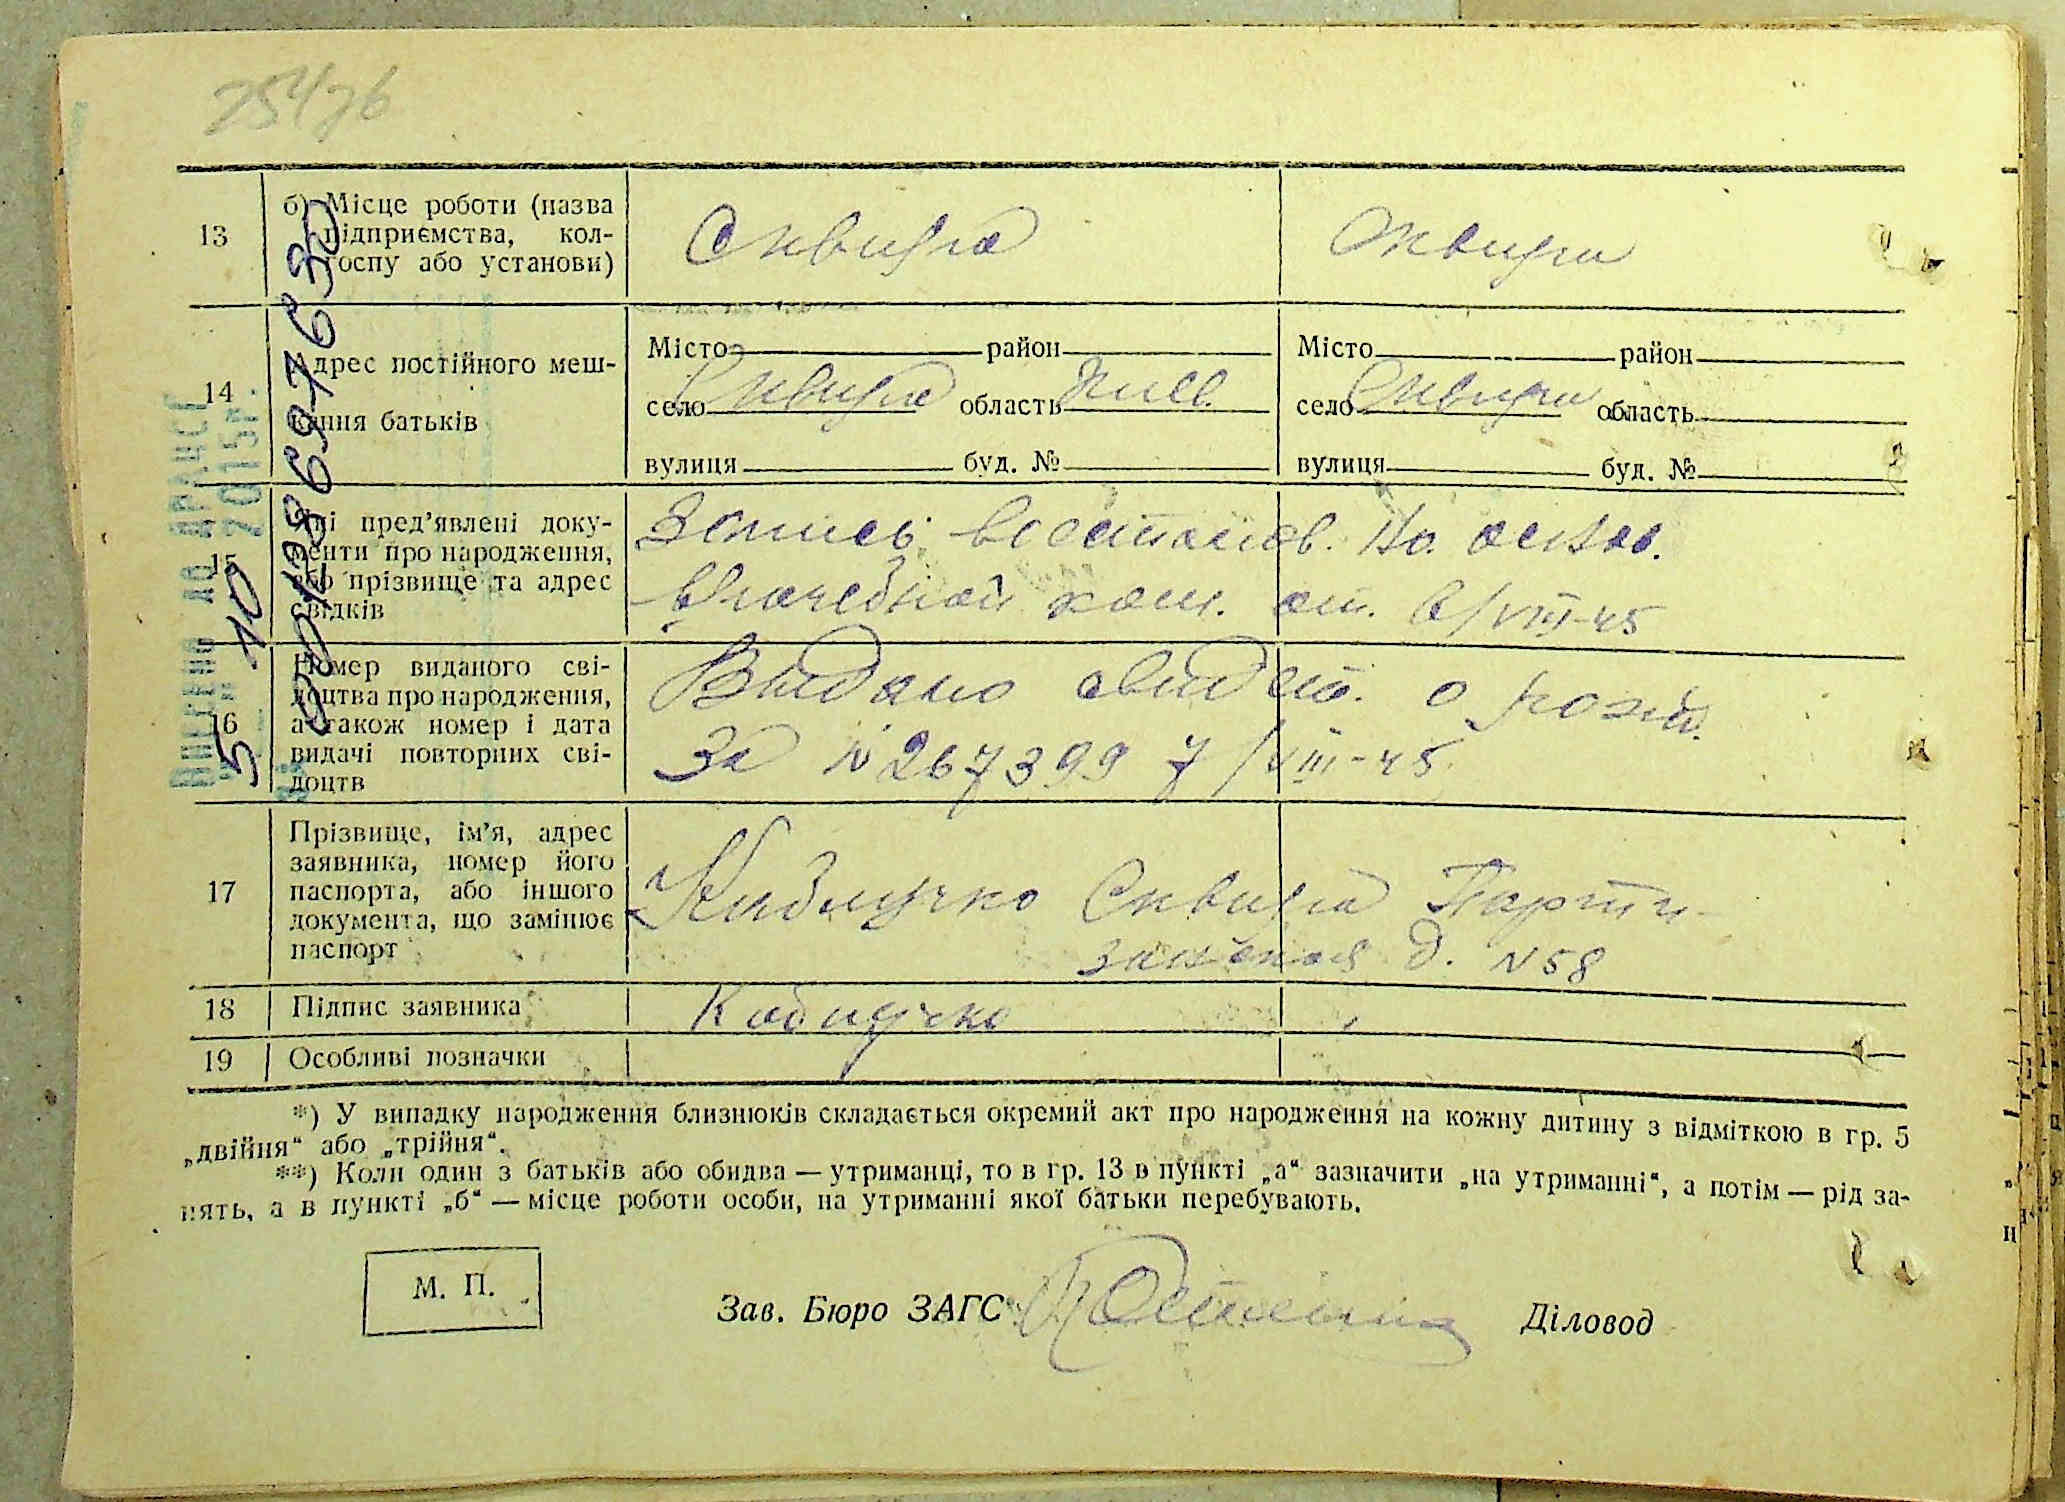 25476
13
б) Місце роботи (назва
підприємства, кол-
госпу або установи)
Сквира
Сквира
14
Адрес постійного меш-
кання батьків
Місто район
село Сквира область Киев.
вулиця буд. №
Місто район
село Сквира область
вулиця буд. №
15
Які пред’явлені доку-
менти про народження,
або прізвище та адрес
свідків
Запись восстанов. По основ.
врачебной ком. от. 6/VIII-45
16
Номер виданого сві-
доцтва про народження,
а також номер і дата
видачі повторних сві-
доцтв
Выдано свидет. о рожд.
За N 267399 7/VIII-45
17
Прізвище, ім’я, адрес
заявника, номер його
паспорта, або іншого
документа, що замінює
паспорт
Сквира Парти-
занская д. N 58
18
Підпис заявника
19
Особливі позначки
*) У випадку народження близнюків складається окремий акт про народження на кожну дитину з відміткою в гр. 5
„двійня“ або „трійня“.
**) Коли один з батьків або обидва — утриманці, то в гр. 13 в пункті „а“ зазначити „на утриманні“, а потім — рід за-
нять, а в пункті „б“ — місце роботи особи, на утриманні якої батьки перебувають.
М. П.
Зав. Бюро ЗАГС
Діловод
5 10 2015р.